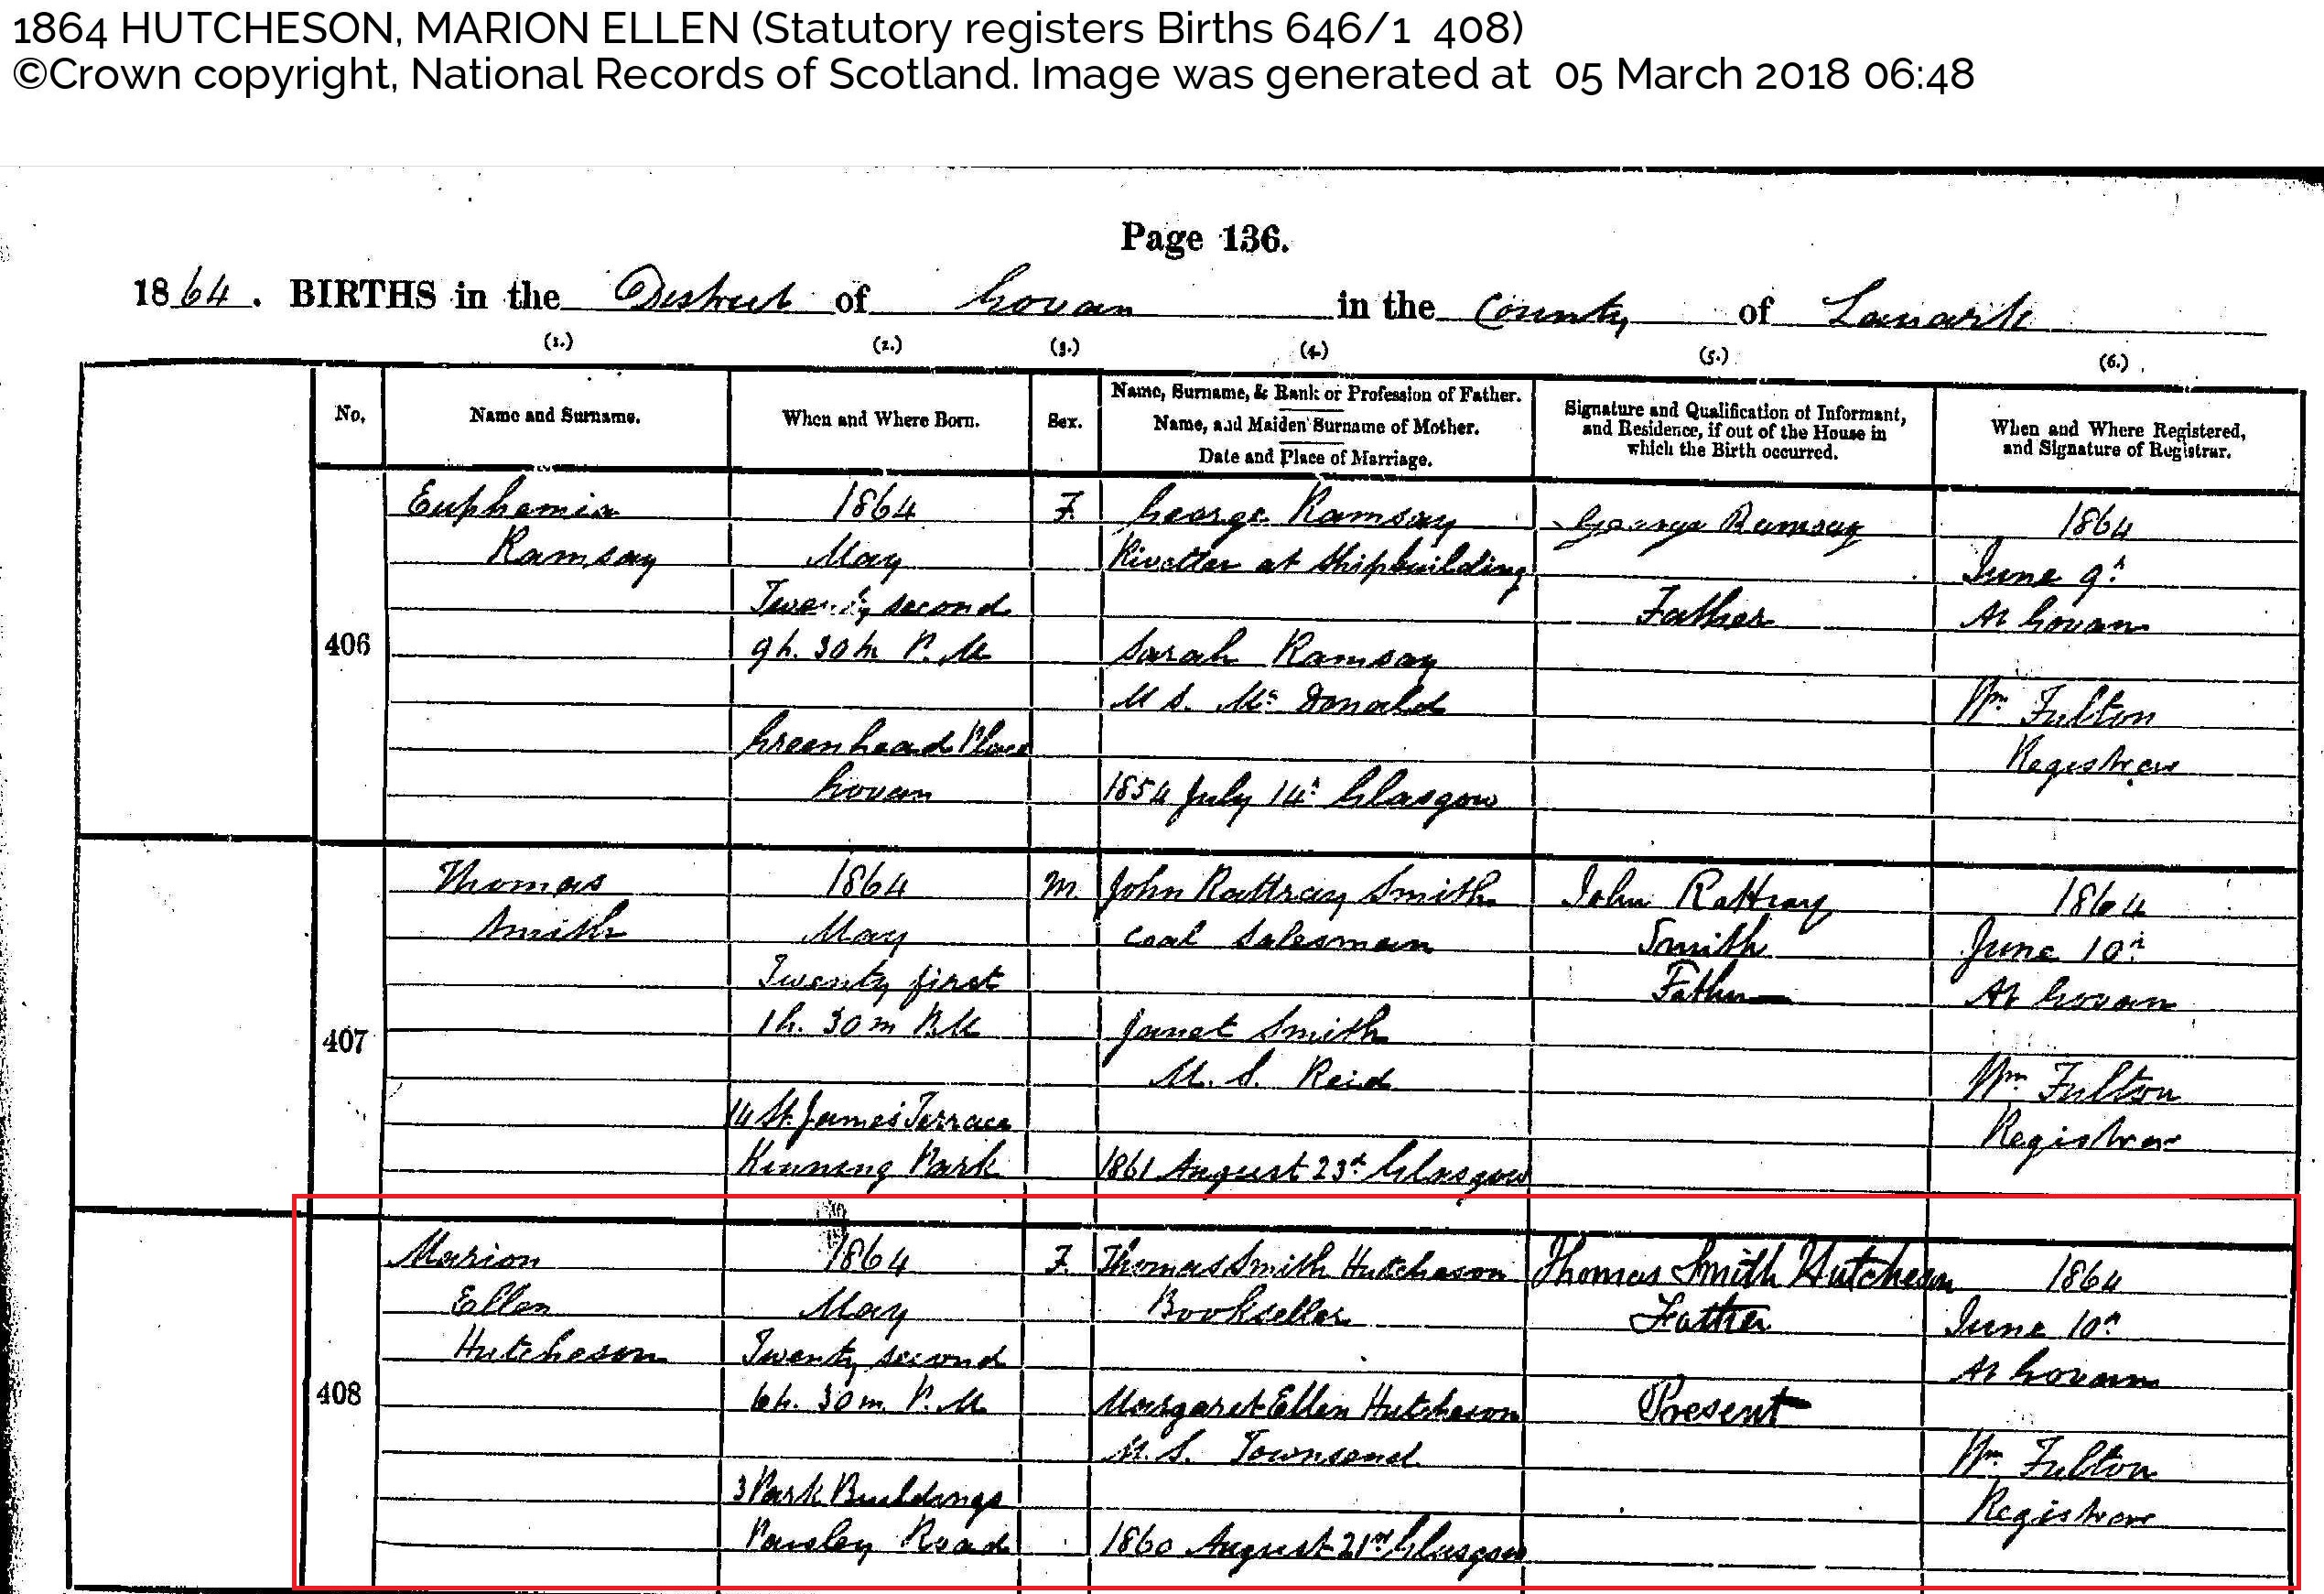 1864 HUTCHESON, MARION ELLEN (Statutory registers Births 646/1 408)
©Crown copyright, National Records of Scotland. Image was generated at 05 March 2018 06:48
Page 136.
1864. BIRTHS in the District of Govan in the County of Lanark
(1.) (2.) (3.) (4.) (5.) (6.)
No. Name and Surname. When and Where Born. Sex. Name, Surname, & Rank or Profession of Father.
Name, and Maiden Surname of Mother.
Date and Place of Marriage.
Signature and Qualification of Informant,
and Residence, if out of the House in
which the Birth occurred.
When and Where Registered,
and Signature of Registrar.
406
Euphemia
Ramsay
1864
May
Twenty second
9h. 30m P.M
Greenhead Place
Govan
F.
George Ramsay
Rivetter at Shipbuilding
Sarah Ramsay
M S. Mc Donald
1854 July 14th Glasgow
George Ramsay
Father
1864
June 9th
At Govan
Wm Fulton
Registrar
407
Thomas
Smith
1864
May
Twenty first
1h. 30m P.M
14 St. James Terrace
Kinning Park
M.
John Rattray Smith
Coal Salesman
Janet Smith
M. S. Reid
1861 August 23d Glasgow
John Rattray
Smith
Father
1864
June 10th
At Govan
Wm Fulton
Registrar
408
Marion
Ellen
Hutcheson
1864
May
Twenty second
6h. 30m. P.M
3 Park Buildings
Paisley Road
F.
Thomas Smith Hutcheson
Bookseller
Margaret Ellen Hutcheson
M. S. Townsend
1860 August 21st Glasgow
Thomas Smith Hutcheson
Father
Present
1864
June 10th
At Govan
Wm Fulton
Registrar